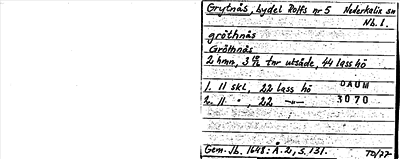 Grytnås, bydel Rolfs nr 5 Nederkalix sn
Nb. l.
gröthnås
Gröthnås
2 hmn, 3 9/16 tnr utsäde, 44 lass hö
1. 11 skl, 22 lass hö
2. 11 " , 22 —"—
DAUM
3070
Gem. Jb. 1648: Å.2, s. 131. TD/77